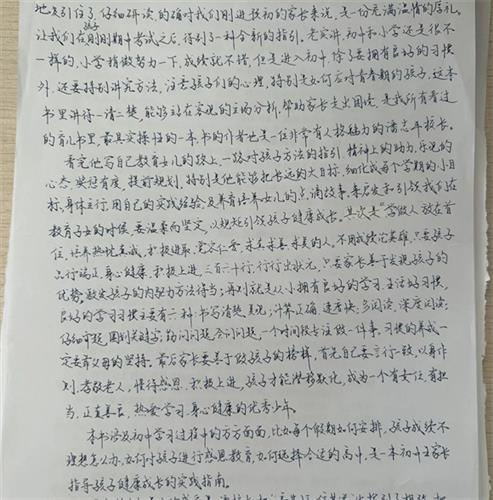 地吸引住了,仔细研读,的确对我们刚进校初的家长来说,是一份充满温情的厚礼,
让我们在刚刚期中考试之后,得到了一种全新的指引。老实讲,初中和小学还是很不
一样的,小学稍微努力一下,成绩就不错,但是进入初中,除了要拥有良好的习惯
外,还要特别讲究方法,注意孩子们的心理,特别是如何应对青春期的孩子,这本
书里讲得一清二楚,能够站在客观的立场分析,帮助家长走出困境,是我所有看过
的育儿书里,最具实操性的一本,书的作者也是一位非常有人格魅力的潘志平校长。
看完他写自己教育女儿的路上,一路对孩子方法的指引,精神上的助力,作说的
心态,奖惩有度,提前规划,特别是他能够把长远的大目标,细化成每个学期的小目
标,身体立行,用自己的实践经验及养育培养女儿的点滴故事,来启发和引领我们在
教育孩子的时候,要温柔而坚定,以规矩引领孩子健康成长。其次是“学做人”放在首
位,培养热忱真诚,积极进取,宽容仁爱,求真求善求美的人。不用成绩论英雄,只要孩子
品行端正,身心健康,积极上进,三百六十行,行行出状元,只要家长善于发现孩子的
优势,激发孩子的内驱力方法得当;再则就是从小拥有良好的学习、生活好习惯,
良好的学习习惯主要有六种:书写清楚,美观;计算正确,速度快;多阅读,深度阅读;
仔细审题,圈划关键字;勤问问题,会问问题,一个时间段专注做一件事,习惯的养成一
定要有父母的坚持。最后家长要善于做孩子的榜样,首先自己要言行一致,以身作
则,孝敬老人,懂得感恩,积极上进,孩子才能潜移默化,成为一个有责任,有担
当,正直善良,热爱学习,身心健康的优秀少年。
本书涉及初中学习过程中的方方面面,比如每个假期如何安排,孩子成绩不
理想怎么办,如何对孩子进行感恩教育,如何选择合适的高中,是一本初中生家长
指导孩子健康成长的实践指南。